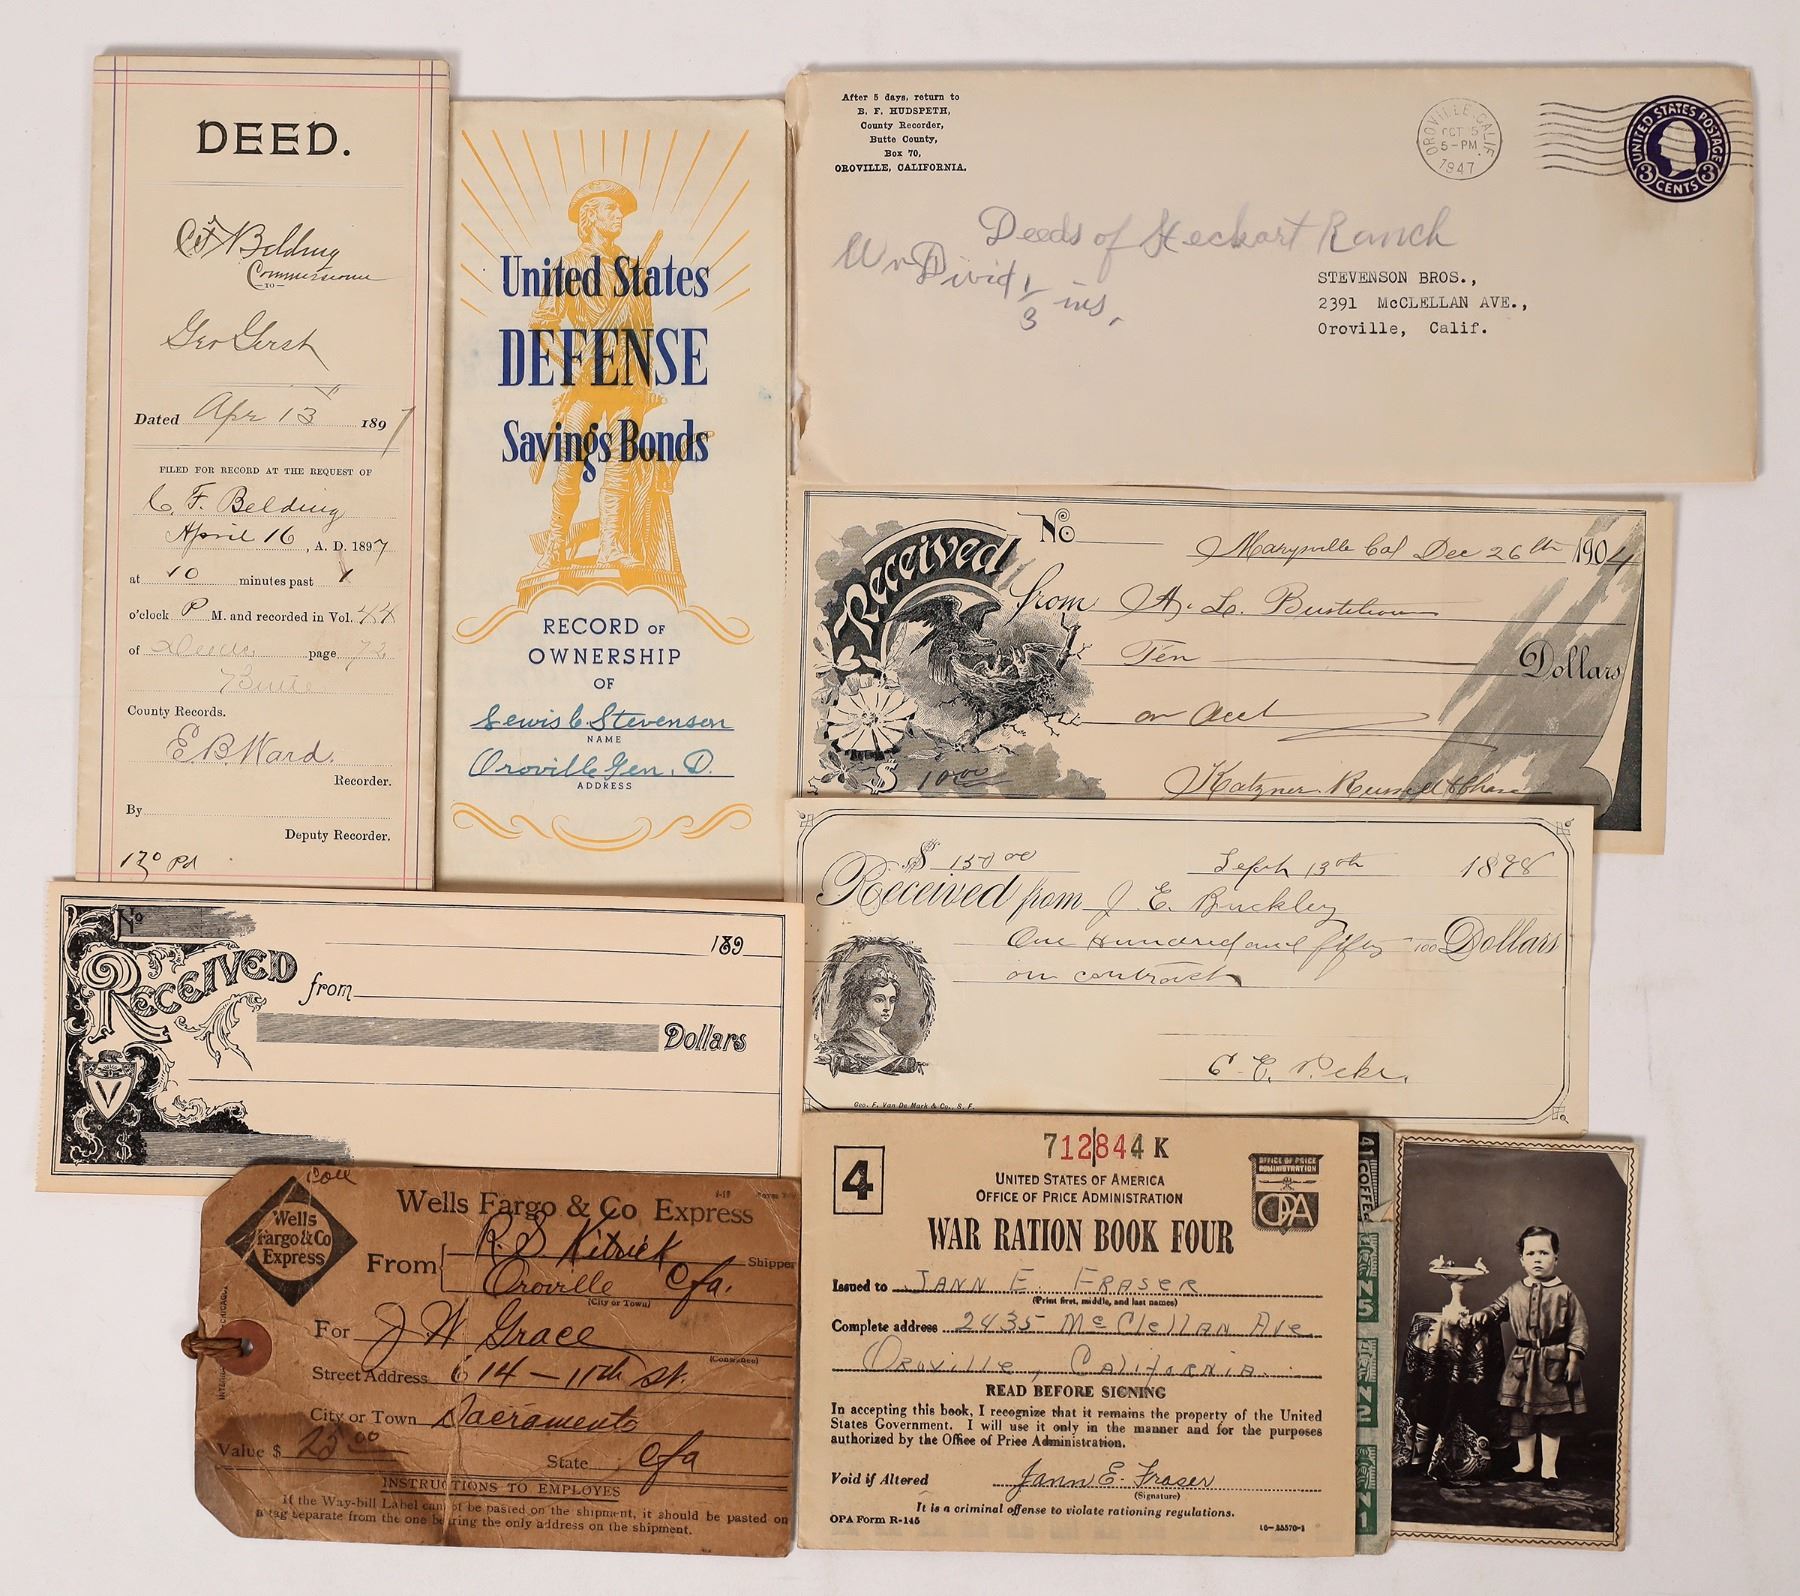 DEED.
C F Belding
Commissioner
—TO—
Geo Gerst
Dated Apr 13 1897
FILED FOR RECORD AT THE REQUEST OF
C. F. Belding
April 16, A. D. 1897
at 10 minutes past 1
o'clock P M. and recorded in Vol. 44
of Deeds page 72
Butte
County Records.
E B. Ward.
Recorder.
By
Deputy Recorder.
United States
DEFENSE
Savings Bonds
RECORD OF
OWNERSHIP
OF
Lewis C Stevenson
NAME
Oroville Gen. D.
ADDRESS
After 5 days, return to
B. F. HUDSPETH,
County Recorder,
Butte County,
Box 70,
OROVILLE, CALIFORNIA.
OROVILLE, CALIF.
OCT 15
5-PM
1947
UNITED STATES POSTAGE
3 CENTS 3
Deeds of Steckart Ranch
Divid 1/3 ins.
STEVENSON BROS.,
2391 McCLELLAN AVE.,
Oroville, Calif.
No
Marysville Cal Dec 26th 1904
Received from A. L.
Ten Dollars
on acct
$ 10.00
Katzner Russell &
$ 150.00 Sept 13th 1898
Received from J E. Buckley
One Hundred and fifty 100 Dollars
on contract
C. E.
Geo. F. Van De Mark & Co., S. F.
No
189
RECEIVED from
Dollars
$
Wells Fargo & Co Express
Wells
Fargo & Co
Express
From R. S Kitrick Shipper
Oroville Cfa.
(City or Town)
For J W Grace
(Consignee)
Street Address 614 — 11th St.
City or Town Sacramento
Value $ 25 00 State Cfa
INSTRUCTIONS TO EMPLOYES
If the Way-bill Label cannot be pasted on the shipment, it should be pasted on
a tag separate from the one bearing the only address on the shipment.
4
712844 K
UNITED STATES OF AMERICA
OFFICE OF PRICE ADMINISTRATION
OFFICE OF PRICE
ADMINISTRATION
OPA
WAR RATION BOOK FOUR
Issued to JANN E. FRASER
(Print first, middle, and last names)
Complete address 2435 McClellan Ave
Oroville, California.
READ BEFORE SIGNING
In accepting this book, I recognize that it remains the property of the United
States Government. I will use it only in the manner and for the purposes
authorized by the Office of Price Administration.
Void if Altered Jann E. Fraser
(Signature)
It is a criminal offense to violate rationing regulations.
OPA Form R-145
16—35570-1
41 COFFEE
N5
N2
N1